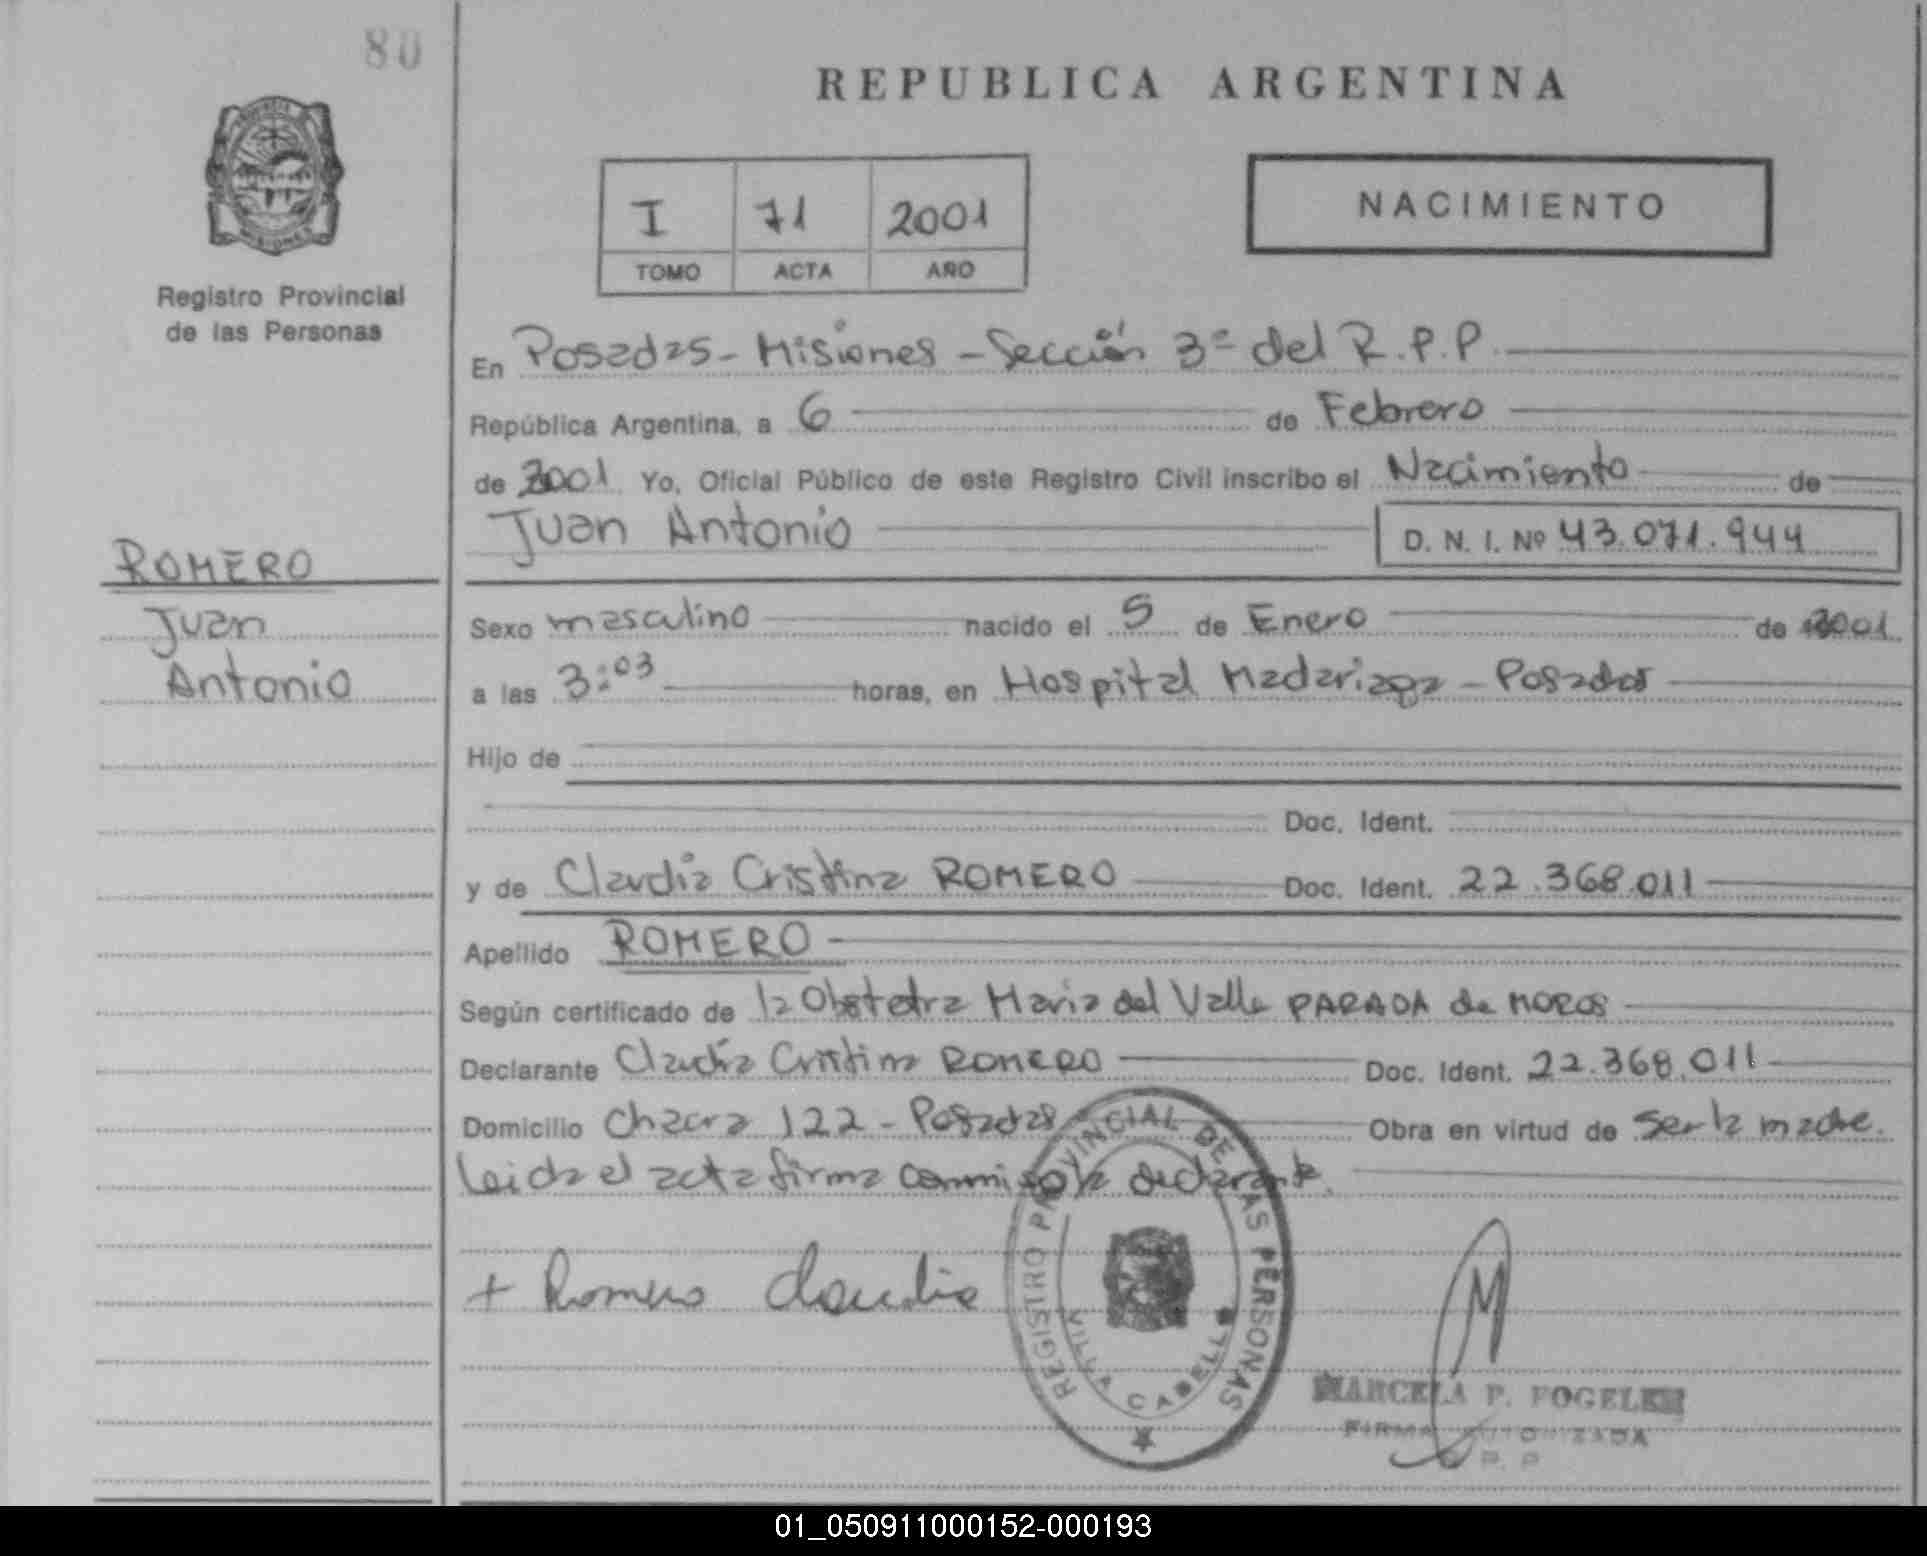 80
REPUBLICA ARGENTINA
PROVINCIA
MISIONES
Registro Provincial
de las Personas
I 71 2001
TOMO ACTA AÑO
NACIMIENTO
En Posadas - Misiones - Sección 3ª del R.P.P.
República Argentina, a 6 de Febrero
de 2001 Yo, Oficial Público de este Registro Civil inscribo el Nacimiento de
Juan Antonio D. N. I. Nº 43.071.944
ROMERO
Juan
Antonio
Sexo masculino nacido el 5 de Enero de 2001
a las 3:03 horas, en Hospital Madariaga - Posadas
Hijo de
Doc. Ident.
y de Claudia Cristina ROMERO Doc. Ident. 22.368.011
Apellido ROMERO
Según certificado de la Obstetra Maria del Valle PARADA de MOROS
Declarante Claudia Cristina ROMERO Doc. Ident. 22.368.011
Domicilio Chacra 122 - Posadas Obra en virtud de ser la madre.
Leida el acta firma conmigo la declarante.
+ Romero Claudia
REGISTRO PROVINCIAL DE LAS PERSONAS
VILLA CABELLO
MARCELA P. FOGELER
FIRMA AUTORIZADA
P. P
01_050911000152-000193